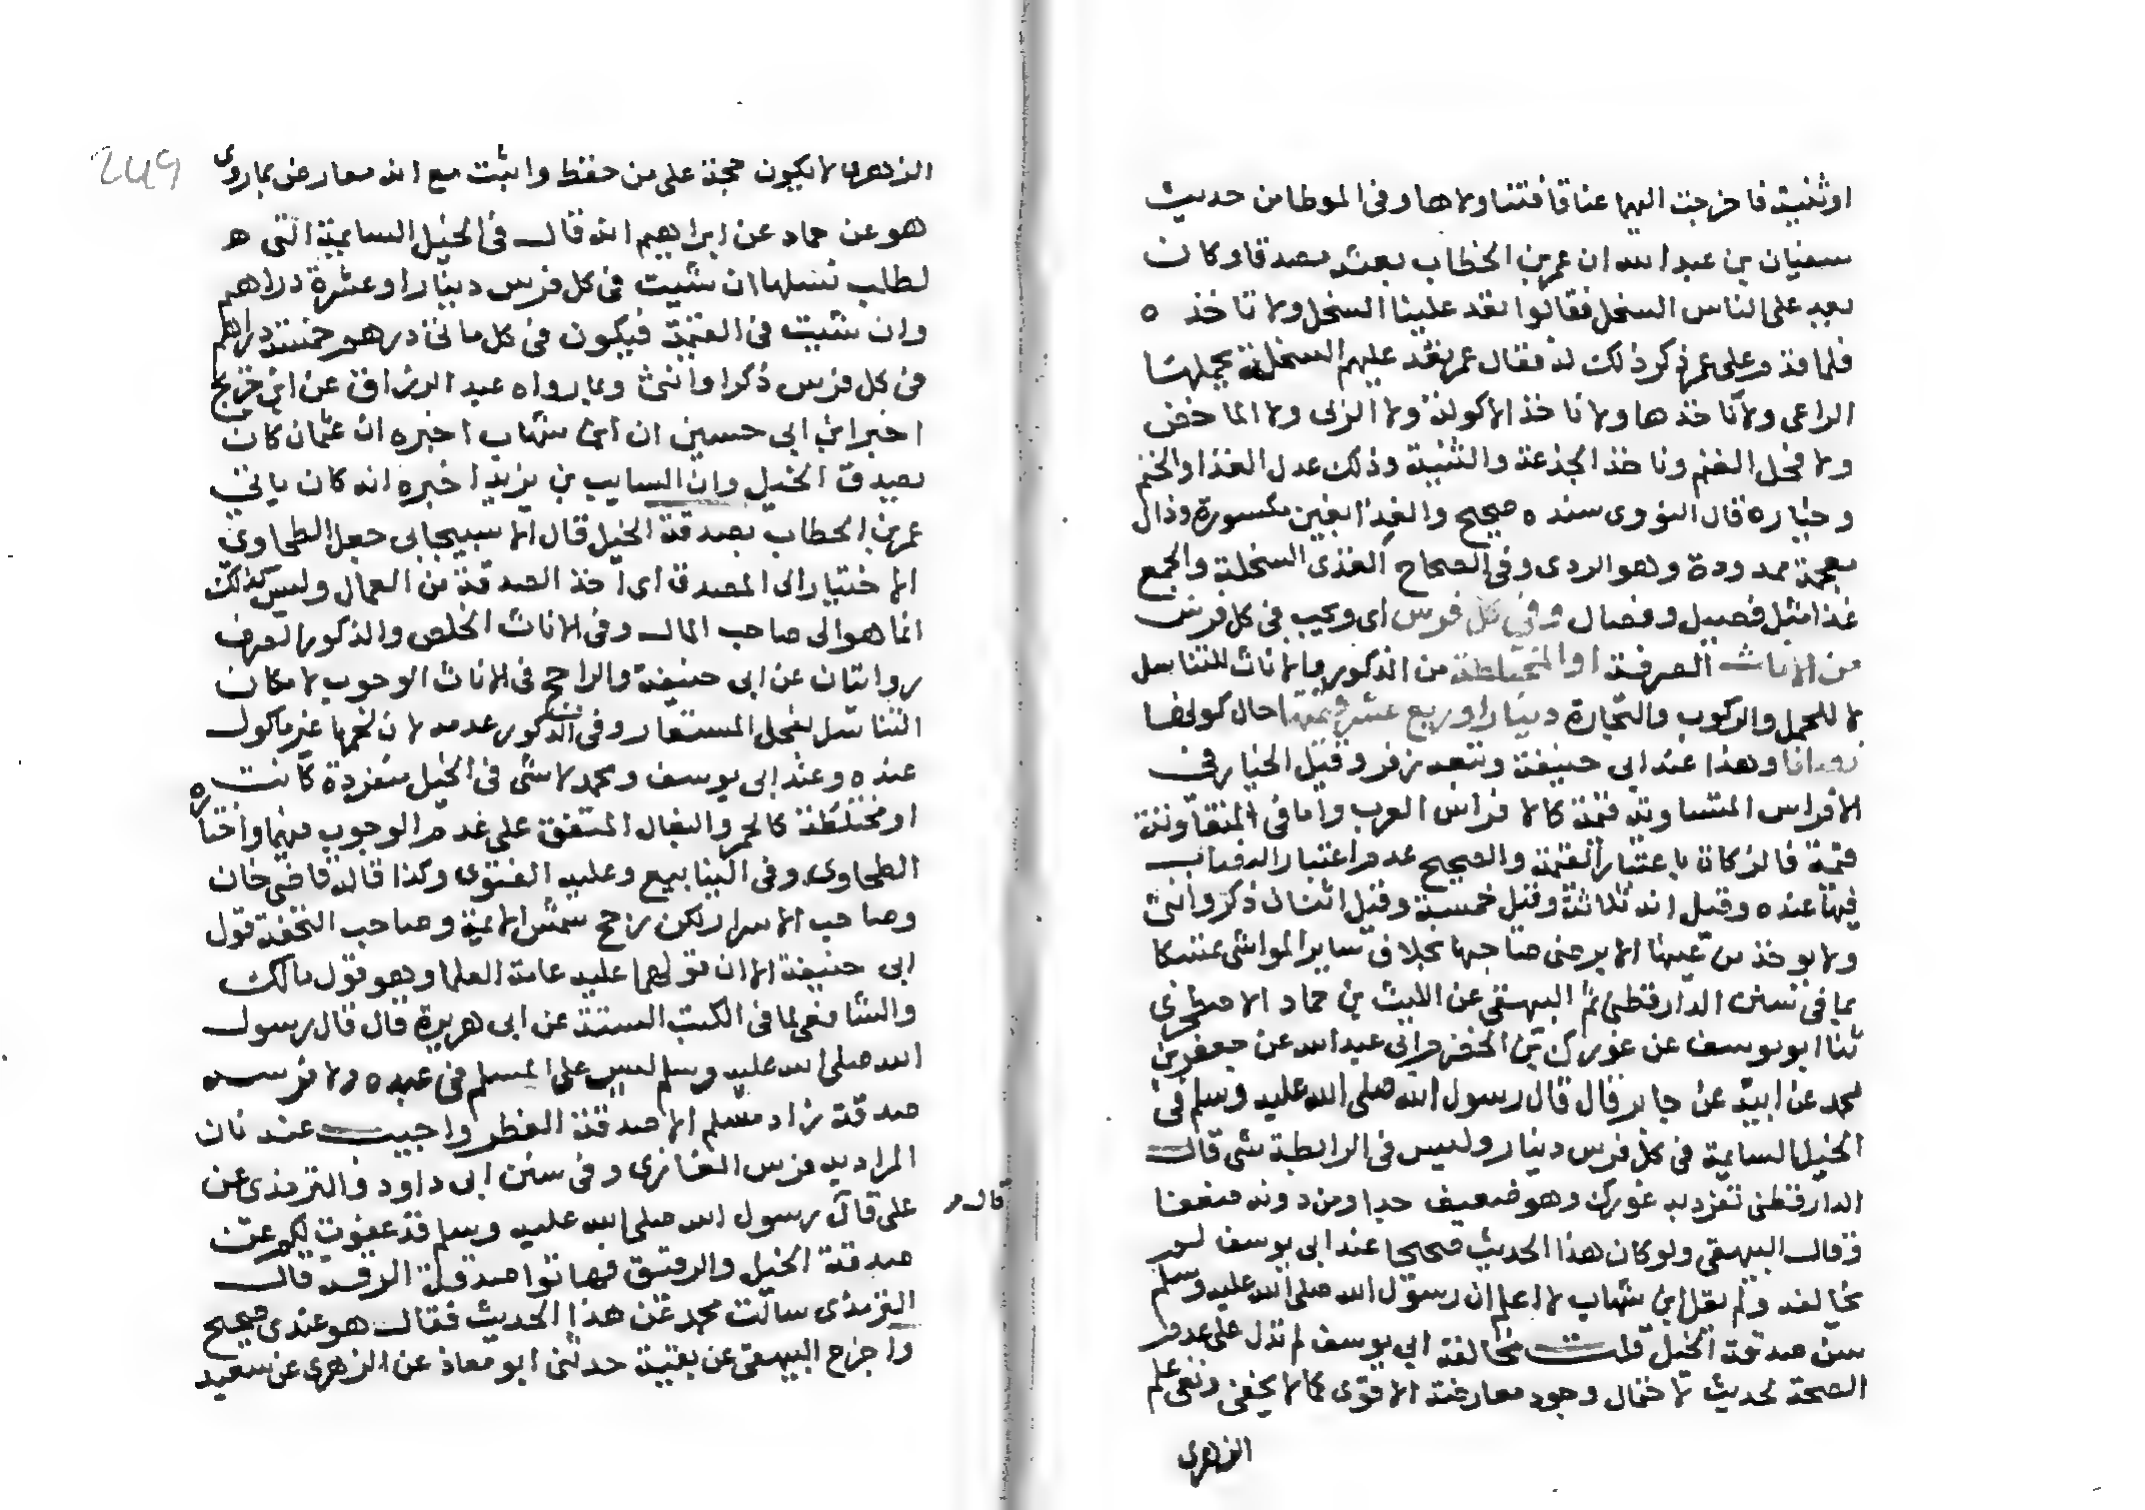 او ثنية فاخرجت اليهما عناقا فتناولاها وفي الموطا من حديث
سفيان بن عبد الله ان عمر بن الخطاب بعثه مصدقا وكان
يعد على الناس السخل فقالوا تعد علينا السخل ولا تاخذه
فلما قدم على عمر ذكر ذلك له فقال عمر نعد عليهم السخلة يحملها
الراعي ولا ناخذها ولا ناخذ الاكولة ولا الربى ولا الماخض
ولا فحل الغنم وناخذ الجذعة والثنية وذلك عدل الغذا والغنم
وخياره قال النووي سنده صحيح والغذا بغين مكسورة وذال
معجمة ممدودة وهو الردي وفي الصحاح الغذى السخلة والجمع
غذا مثل فصيل وفصال وفي كل فرس اي ويجب في كل فرس
من الاناث الصرفة او المختلطة من الذكور والاناث للتناسل
لا للحمل والركوب والتجارة دينار او ربع عشر قيمتها حال كونها
نصابا وهذا عند ابي حنيفة وتبعه زفر وقيل الخيار في
الافراس المتساوية قيمة كالافراس العرب واما في المتفاوتة
قيمة فالزكاة باعتبار القيمة والصحيح عدم اعتبار النصاب
فيها عنده وقيل انه ثلاثة وقيل خمسة وقيل اثنان ذكر وانثى
ولا يوخذ من عينها الا برضى صاحبها بخلاف ساير المواشي متمسكا
بما في سنن الدارقطني ثم البيهقي عن الليث بن حماد الاصطخري
ثنا ابو يوسف عن غورك بن الحضرم ابي عبد الله عن جعفر بن
محمد عن ابيه عن جابر قال قال رسول الله صلى الله عليه وسلم في
الخيل السايمة في كل فرس دينار وليس في الرابطة شي قال
الدارقطني تفرد به غورك وهو ضعيف جدا ومن دونه ضعفا
وقال البيهقي ولو كان هذا الحديث صحيحا عند ابي يوسف لم
يخالفه ولم يقل ابن شهاب لا اعلم ان رسول الله صلى الله عليه وسلم
سن صدقة الخيل قلت مخالفة ابي يوسف لم تدل على عدم
الصحة لحديث لاحتمال وجود معارضة الاقوى كما لا يخفى ونفي علم
الزهري
249
الزهري لا يكون حجة على من حفظ واثبت مع انه معارض بما روى
هو عن حماد عن ابراهيم انه قال في الخيل السايمة التي هـ
لطلب نسلها ان شيت في كل فرس دينارا وعشرة دراهم
وان شيت في القيمة فيكون في كل ماتي درهم خمسة دراهم
في كل فرس ذكرا وانثى وبما رواه عبد الرزاق عن ابن جريج
اخبر ابن ابي حسين ان ابن شهاب اخبره ان عثمان كان
يصدق الخيل وان السايب بن يزيد اخبره انه كان ياتي
عمر بن الخطاب بصدقة الخيل قال الاسبيجابي جعل الطحاوي
الاختيار الى المصدق اي اخذ الصدقة من العمال وليس كذلك
انما هو الى صاحب المال وفي الاناث الخلص والذكور الصرف
روايتان عن ابي حنيفة والراجح في الاناث الوجوب لامكان
التناسل لفحل المستعار وفي الذكور عدمه لان لحمها غير ماكول
عنده وعند ابي يوسف ومحمد لا شي في الخيل منفردة كانت
او مختلطة كالحمر والبغال المتفق على عدم الوجوب فيهما واختاره
الطحاوي وفي الينابيع وعليه الفتوى وكذا قاله قاضي خان
وصاحب الاسرار لكن رجح شمس الايمة وصاحب التحفة قول
ابي حنيفة الا ان قولهما عليه عامة العلما وهو قول مالك
والشافعي لما في الكتب الستة عن ابي هريرة قال قال رسول
الله صلى الله عليه وسلم ليس على المسلم في عبده ولا فرسه
صدقة زاد مسلم الا صدقة الفطر واجيب عنه بان
المراد به فرس الغازي وفي سنن ابي داود والترمذي عن
علي قال قال رسول الله صلى الله عليه وسلم قد عفوت لكم عن
صدقة الخيل والرقيق فهاتوا صدقة الرقة قال
الترمذي سالت محمد عن هذا الحديث فقال هو عندي صحيح
واخرج البيهقي عن بقية حدثني ابو معاذ عن الزهري عن سعيد